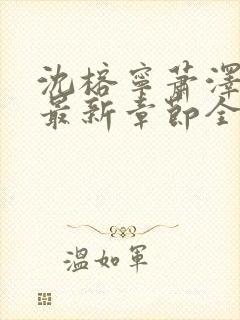 沈榕寧蕭澤
最新章節全
溫如軍